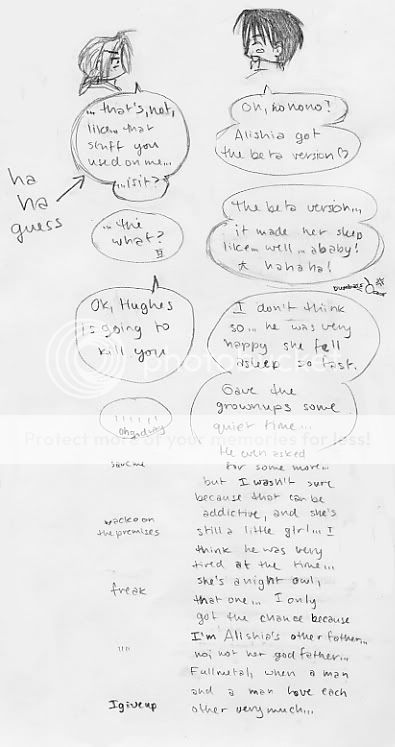 ... that's, not,
like... that
stuff you
used on me...
...isit?
ha
ha
guess
Oh, nonono!
Alishia got
the beta version♡
...the
what?
!!
The beta version...
it made her sleep
like... well... ababy!
hahaha!
Dumbass
Ok, Hughes
is going to
kill you
I don't think
so... he was very
happy she fell
asleep so fast.
!!!!!!
ohgodwhy
Gave the
grownups some
quiet time...
He even asked
for some more...
save me
but I wasn't sure
because that can be
addictive, and she's
still a little girl... I
wacko on
the premises
think he was very
tired at the time...
she's a night owl,
that one... I only
got the chance because
freak
I'm Alishia's other father...
no, not her god father...
Fullmetal, when a man
and a man love each
other very much...
...
I give up
photobucket
Protect more of your memories for less!